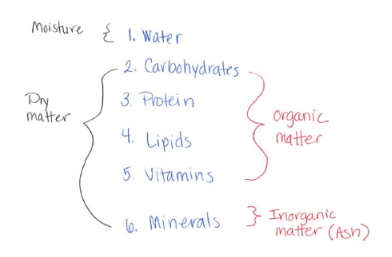 Moisture { 1. Water
2. Carbohydrates
Dry
matter
3. Protein
4. Lipids
5. Vitamins
Organic
matter
6. Minerals
Inorganic
matter (Ash)